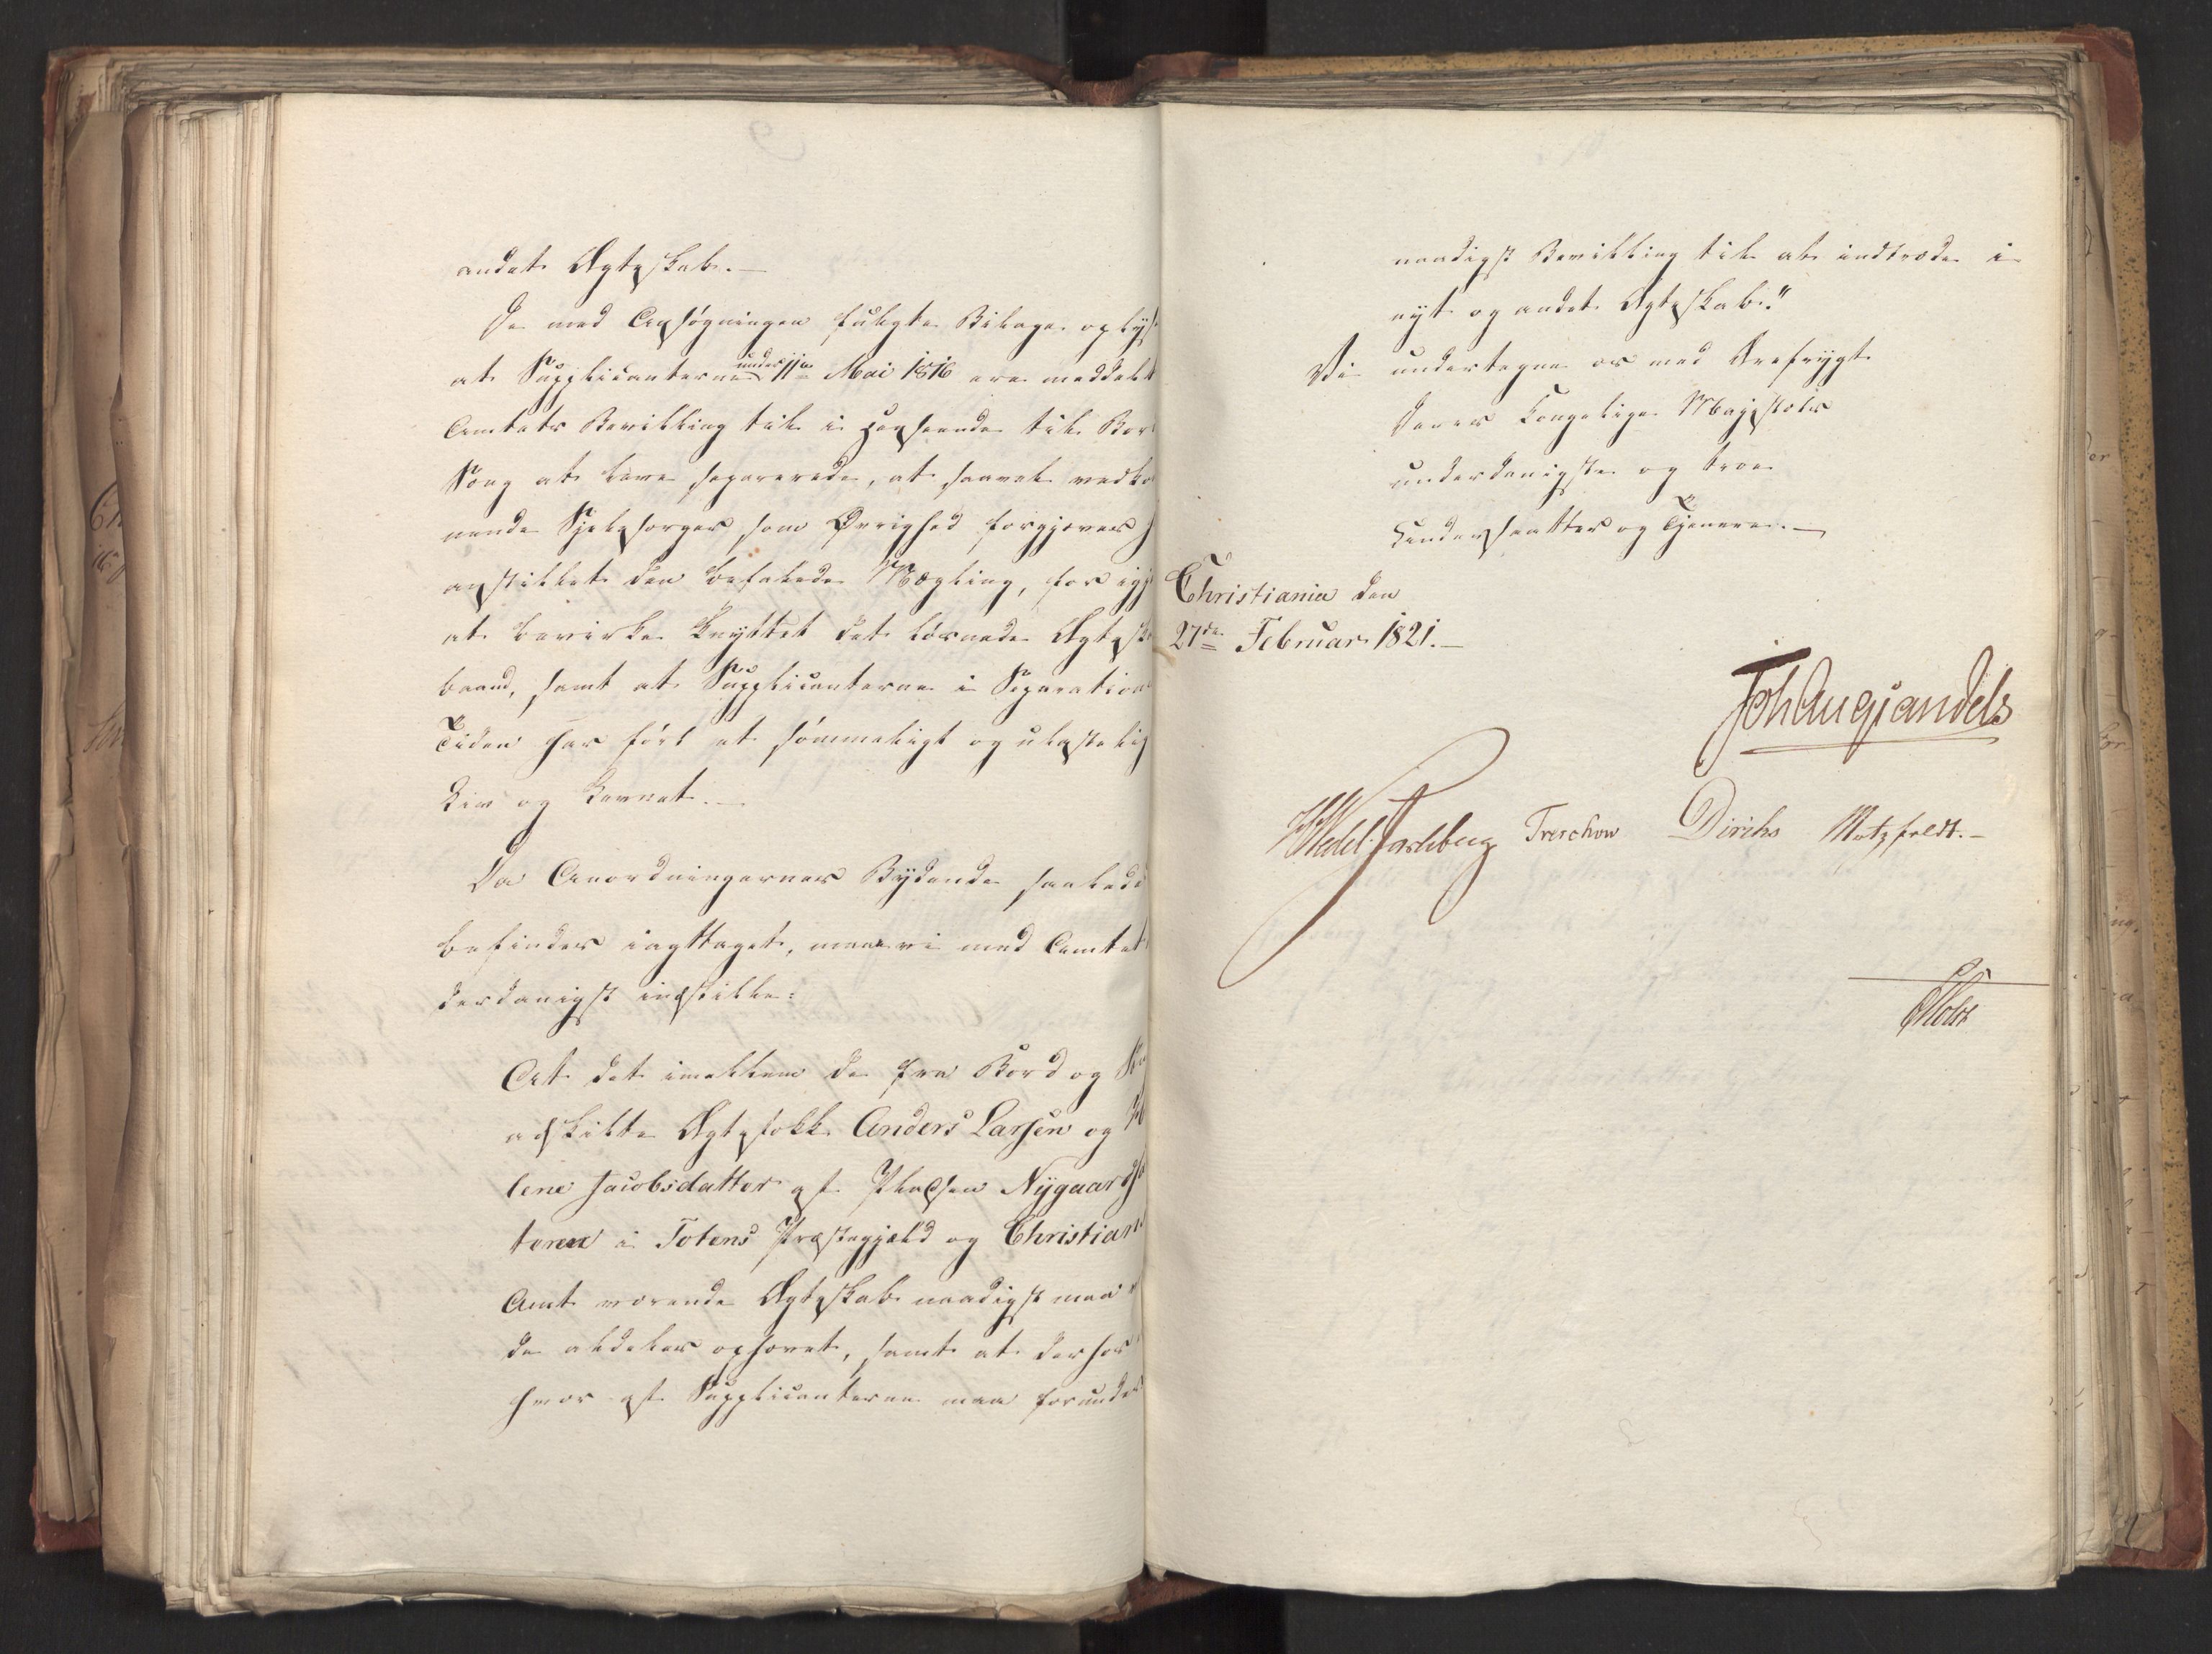 andet Ægteskab. —
De med Ansøgningen fulgte Bilage oplyse
at Supplicanterne under 11te Mai 1816 ere meddelt
Amtets Bevilling til i Henseende til Bord
Seng at leve separerede, at saavel vedkom
mende Sjelesørger, som Øvrighed forgjæves h
anstillet den befalede Mægling, for igje
at bevirke knyttet det løsnede Ægteska
baand, samt at Supplicanterne i Separations
Tiden har ført et sømmeligt og ulasteligt
Liv og Levnet. —
Da Anordningernes Bydende saaledes
befindes iagttaget, maae vi med Amtet
derdanigst indstille:
At det imellem de fra Bord og Se
adskilte Ægtefolk Anders Larsen og He
lene Jacobsdatter af Pladsen Nygaards
teren i Totens Præstegjeld og Christians
Amt værende Ægteskab naadigst maa
de aldeles ophævet, samt at derhos
hver af Supplicanterne maa forundes
naadigst Bevilling til at indtræde i
nyt og andet Ægteskab."
Vi undertegne os med Ærefrygt
Deres Kongelige Majestæts
underdanigste og troe
Undersaatter og Tjenere. —
Christiania den
27de Februar 1821. —
Joh Aug Sandels
HWedel Jarlsberg Treschow Diriks Motzfeldt. —
Holst